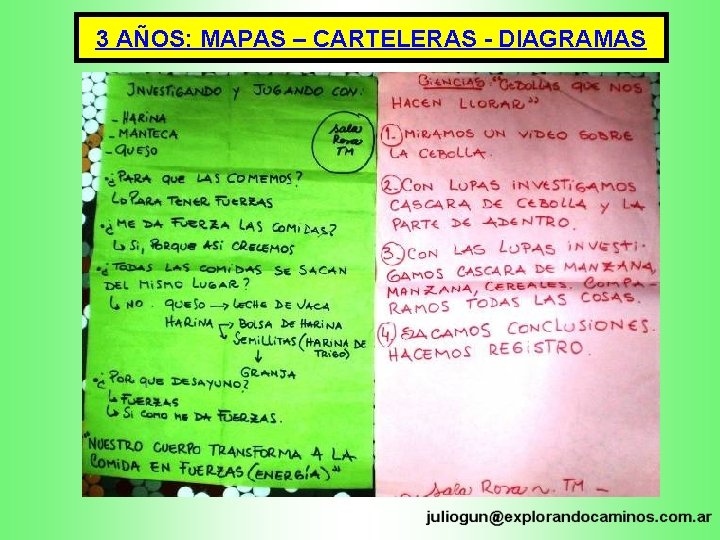 3 AÑOS: MAPAS – CARTELERAS - DIAGRAMAS
INVESTIGANDO Y JUGANDO CON:
- HARINA
- MANTECA
- QUESO
Sala
Rosa
TM
• ¿PARA QUE LAS COMEMOS?
↳ PARA TENER FUERZAS
• ¿ME DA FUERZA LAS COMIDAS?
↳ SI, PORQUE ASÍ CRECEMOS
• ¿TODAS LAS COMIDAS SE SACAN
DEL MISMO LUGAR?
↳ NO. QUESO → LECHE DE VACA
HARINA → BOLSA DE HARINA
SEMILLITAS (HARINA DE
TRIGO)
↓
GRANJA
• ¿POR QUE DESAYUNO?
↳ FUERZAS
↳ SI COMO ME DA FUERZAS.
"NUESTRO CUERPO TRANSFORMA A LA
COMIDA EN FUERZAS (ENERGÍA)"
CIENCIAS: "CEBOLLAS QUE NOS
HACEN LLORAR"
1. MIRAMOS UN VIDEO SOBRE
LA CEBOLLA.
2. CON LUPAS INVESTIGAMOS
CASCARA DE CEBOLLA Y LA
PARTE DE ADENTRO.
3. CON LAS LUPAS INVESTI-
GAMOS CASCARA DE MANZANA,
MANZANA, CEREALES. COMPA-
RAMOS TODAS LAS COSAS.
4. SACAMOS CONCLUSIONES.
HACEMOS REGISTRO.
Sala Rosa TM -
juliogun@explorandocaminos.com.ar